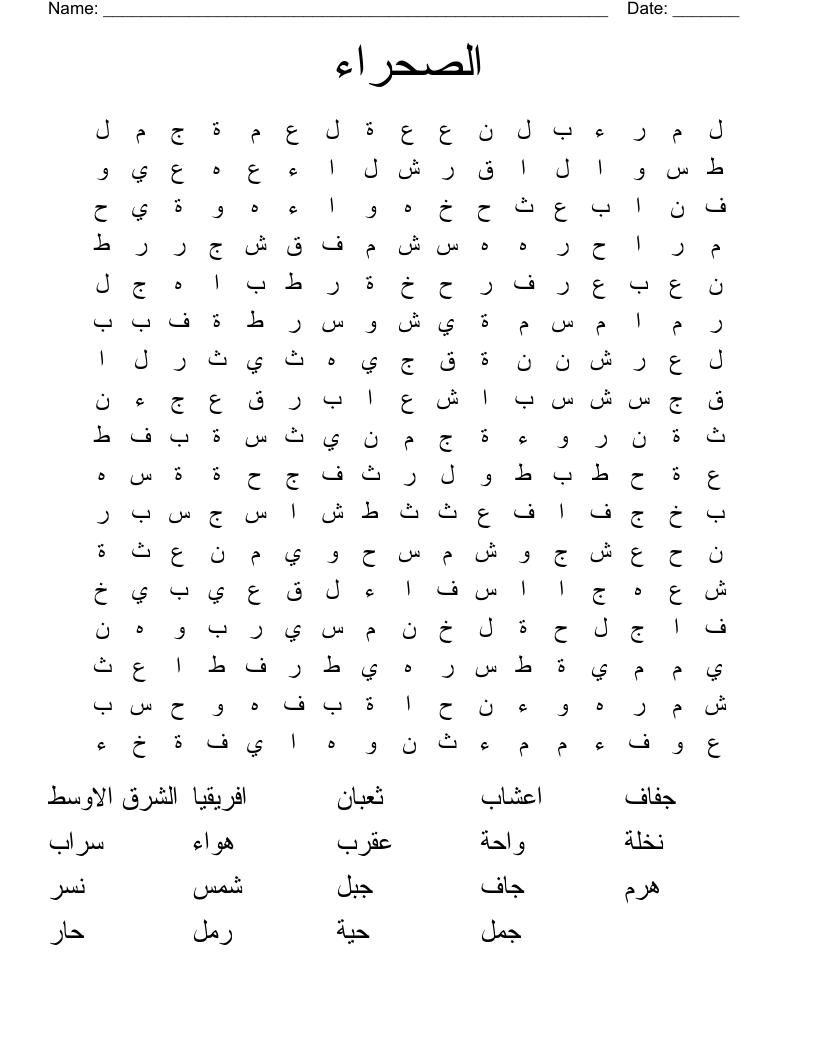 Name: ______________________________________________________ Date: _______
الصحراء
ل م ر ء ب ل ن ع ع ة ل ع م ة ج م ل
ط س و ا ل ا ق ر ش ل ا ء ع ه ع ي و
ف ن ا ب ع ث ح خ ه و ا ء ه و ة ي ح
م ر ا ح ر ه ه س ش م ف ق ش ج ر ر ط
ن ع ب ع ر ف ر ح خ ة ر ط ب ا ه ج ل
ر م ا م س م ة ي ش و س ر ط ة ف ب ب
ل ع ر ش ن ن ة ق ج ي ه ث ي ث ر ل ا
ق ج س ش س ب ا ش ع ا ب ر ق ع ج ء ن
ث ة ن ر و ء ة ج م ن ي ث س ة ب ف ط
ع ة ح ط ب ط و ل ر ث ف ج ح ة ة س ه
ب خ ج ف ا ف ع ث ث ط ش ا س ج س ب ر
ن ح ع ش ج و ش م س ح و ي م ن ع ث ة
ش ع ه ج ا ا س ف ا ء ل ق ع ي ب ي خ
ف ا ج ل ح ة ل خ ن م س ي ر ب و ه ن
ي م م ي ة ط س ر ه ي ط ر ف ط ا ع ث
ش م ر ه و ء ن ح ا ة ب ف ه و ح س ب
ع و ف ء م م ء ث ن و ه ا ي ف ة خ ء
جفاف اعشاب ثعبان افريقيا الشرق الاوسط
نخلة واحة عقرب هواء سراب
هرم جاف جبل شمس نسر
جمل حية رمل حار